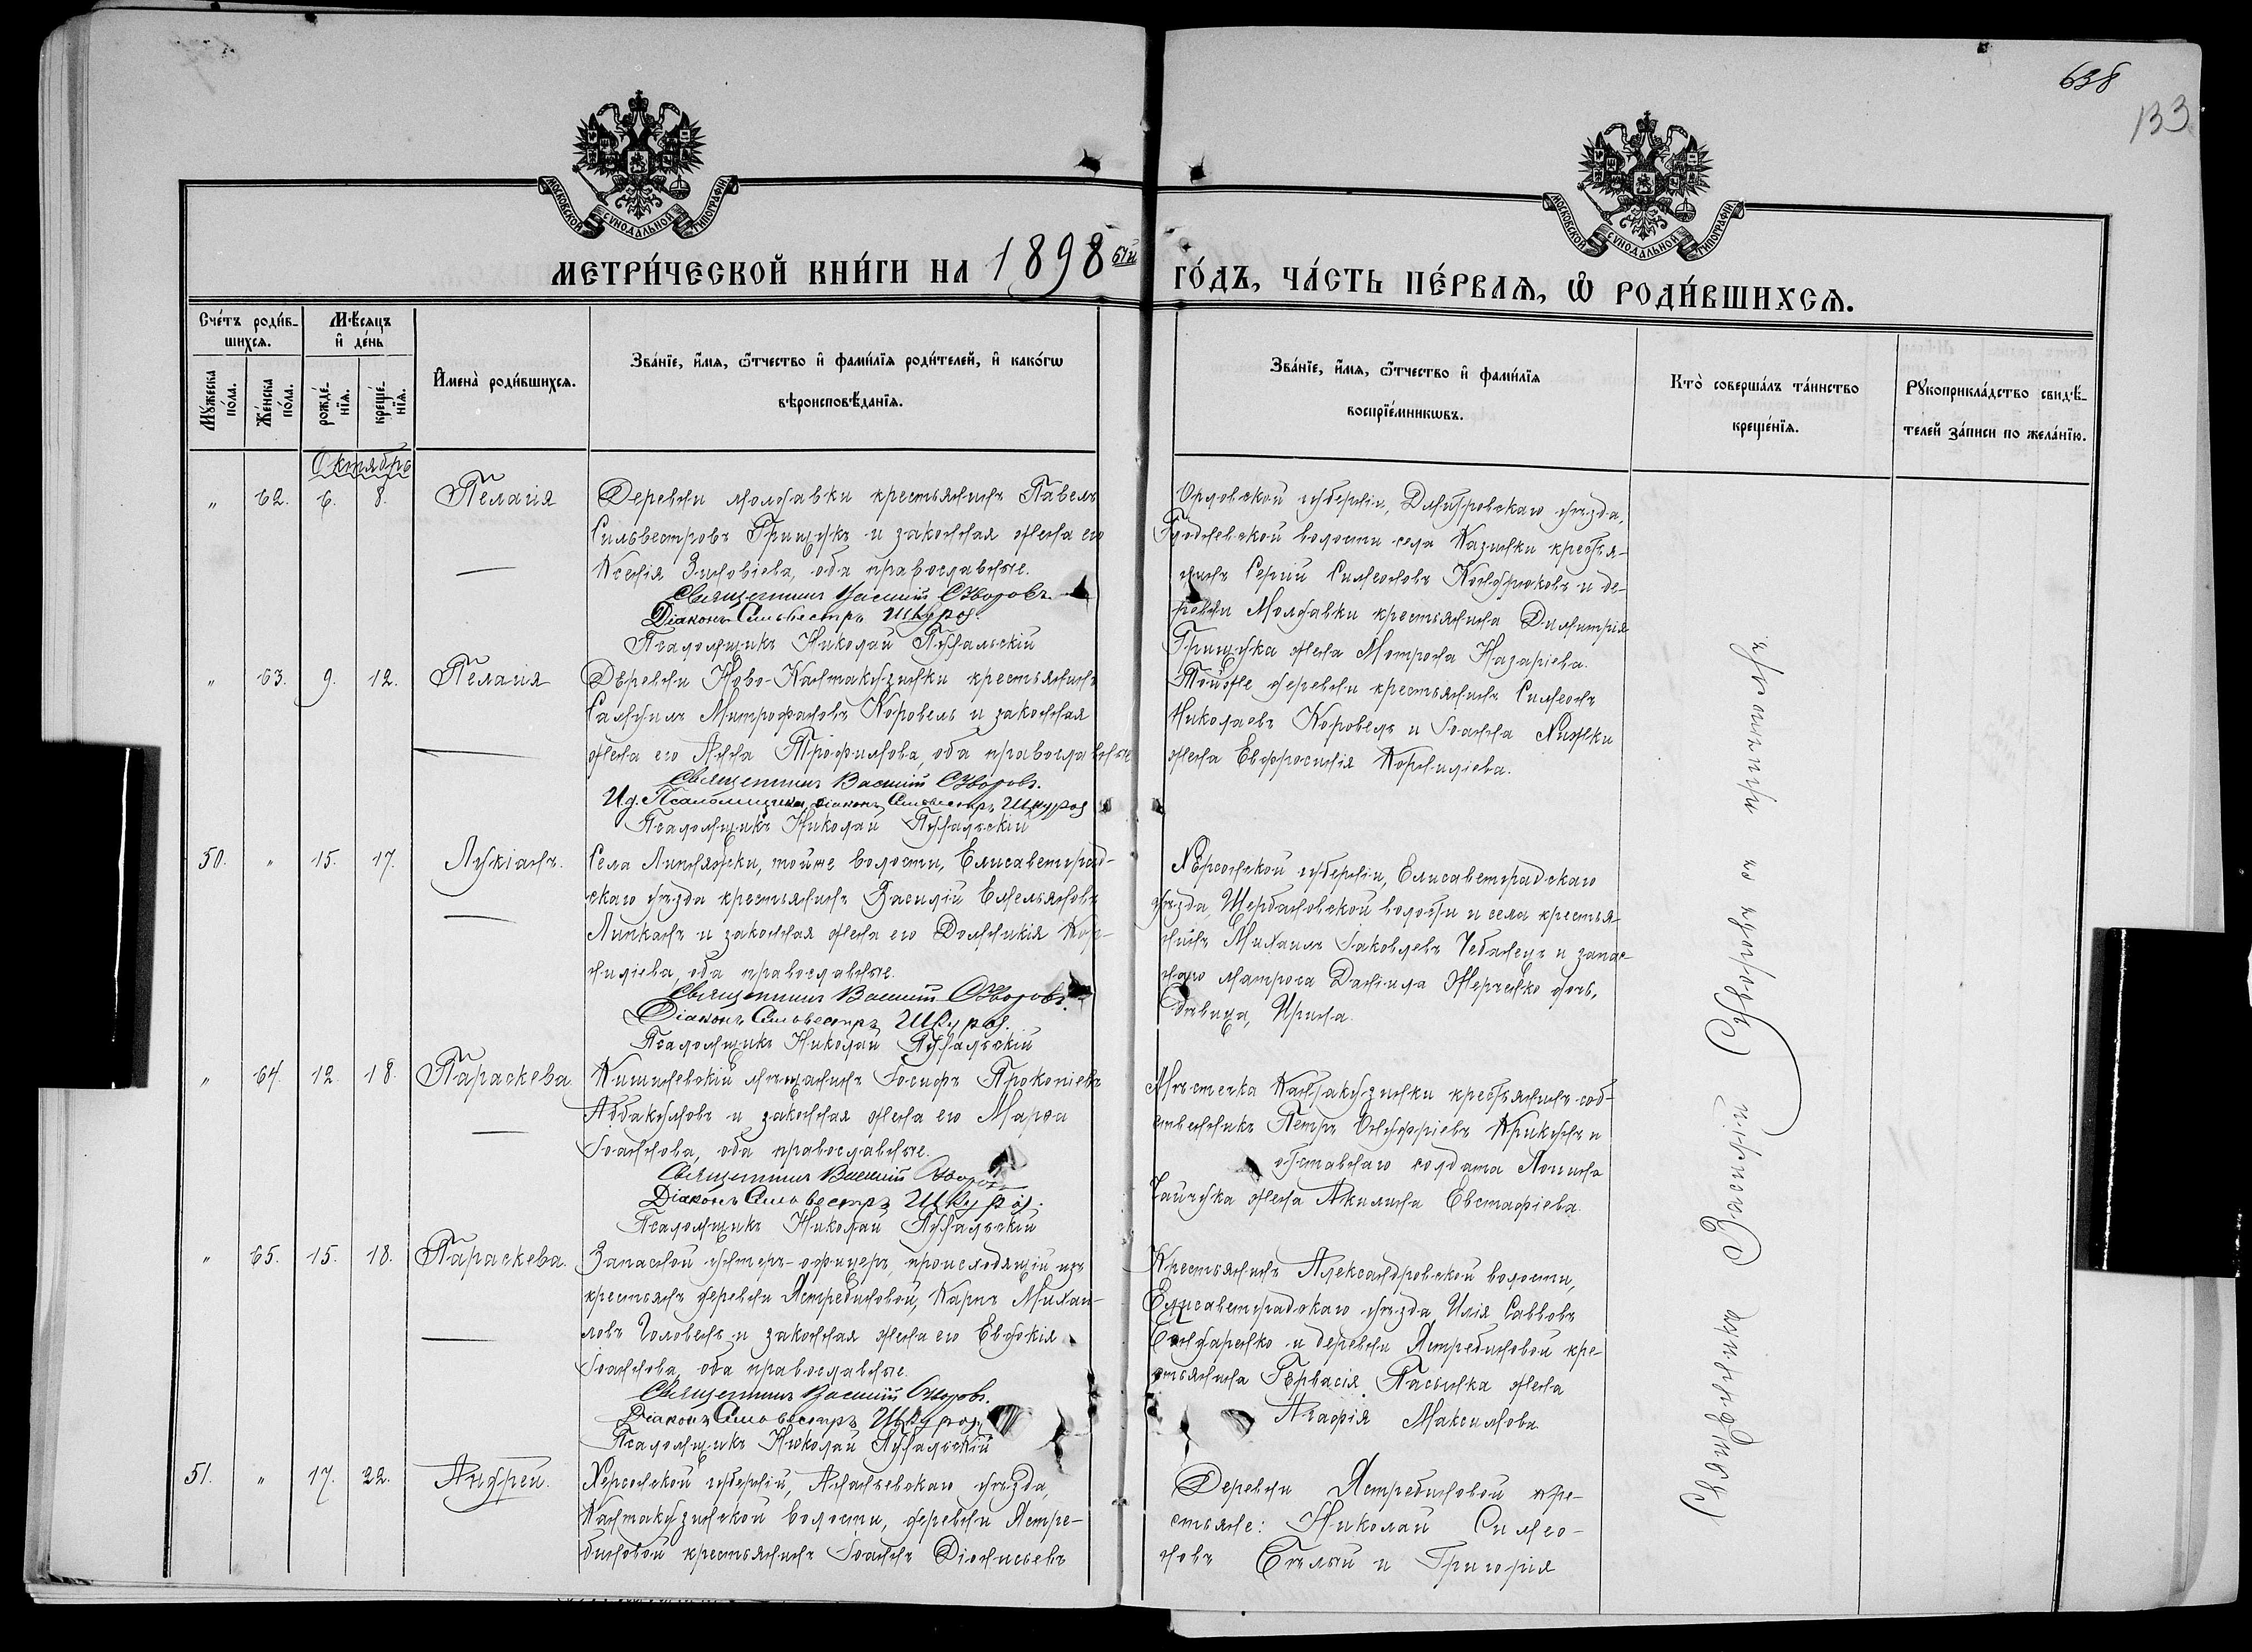 638
133
МОСКОВСКОЙ СУНОДАЛЬНОЙ ТИПОГРАФІИ
МОСКОВСКОЙ СУНОДАЛЬНОЙ ТИПОГРАФІИ
МЕТРИ́ЧЕСКОЙ КНИ́ГИ НА 1898 ой ГО́ДЪ, ЧА́СТЬ ПЕ́РВАѦ, Ѡ҆ РОДИ́ВШИХСѦ.
Сче́тъ роди́в-
шихсѧ.
Мѣ́сѧцъ
и҆ де́нь
Мꙋ́жеска
по́ла.
Же́нска
по́ла.
рожде́-
нїѧ.
креще́-
нїѧ.
И҆мена̀ роди́вшихсѧ.
Зва́нїе, и҆́мѧ, ѻ҆́тчество и҆ фами́лїѧ роди́телей, и҆ како́гѡ
вѣроисповѣ́данїѧ.
Зва́нїе, и҆́мѧ, ѻ҆́тчество и҆ фами́лїѧ
воспрїе́мникѡвъ.
Кто̀ соверша́лъ та́инство
креще́нїѧ.
Рꙋкоприкла́дство свидѣ́-
телей за́писи по жела́нїю.
Октябрь
" 62. 6. 8. Пелагія
Деревни Молдавки крестьянинъ Павелъ
Сильвестровъ Грищукъ и законная жена его
Ксенія Зиновіева, оба православные.
Священникъ Василій
Діаконъ Сильвестръ Шкурой
Псаломщикъ Николай
Орловской губерніи, Дмитровскаго уѣзда,
волости села Казинки крестья-
нинъ Сергій Симеоновъ и де-
ревни Молдавки крестьянина Димитрія
Грищука жена Матрона Назаріева.
" 63. 9. 12. Пелагія
Деревни Ново-Кантакузинки крестьянинъ
Самуилъ Митрофановъ Коровель и законная
жена его Анна Трофимова, оба православные
Священникъ Василій
И.д. Псаломщика діаконъ Сильвестръ Шкурой
Псаломщикъ Николай
Тойже деревни крестьянинъ Симеонъ
Николаевъ Коровель и Іоанна
жена Евфросинія Корниліева.
50. " 15. 17. Лукіанъ.
Села Липняжски, тойже волости, Елисаветград-
скаго уѣзда крестьянинъ Василій Емельяновъ
Липканъ и законная жена его Домникія Кор-
ниліева, оба православные.
Священникъ Василій
Діаконъ Сильвестръ Шкурой.
Псаломщикъ Николай
Херсонской губерніи, Елисаветградскаго
уѣзда, Щербановской волости и села крестья-
нинъ Михаилъ Іаковлевъ Чебанецъ и запас-
наго матроса Даніила дочь,
дѣвица, Ирина.
" 64. 12. 18. Параскева.
Кишиневскій мѣщанинъ Іосифъ Прокопіевъ
Аввакумовъ и законная жена его Марѳа
Іоаннова, оба православные.
Священникъ Василій
Діаконъ Сильвестръ Шкурой.
Псаломщикъ Николай
Мѣстечка Кантакузинки крестьянинъ соб-
ственникъ Петръ Онуфріевъ Крикунъ и
отставнаго солдата Логина
Чайчука жена Акилина Евстафіева.
" 65. 15. 18. Параскева.
Запасной унтеръ-офицеръ, происходящій изъ
крестьянъ деревни Ястребиновой, Карпъ Михаи-
ловъ Головень и законная жена его Евдокія
Іоаннова, оба православные.
Священникъ Василій
Діаконъ Сильвестръ Шкурой
Псаломщикъ Николай
Крестьянинъ Александровской волости,
Елисаветградскаго уѣзда, Илія Саввовъ
Бондаренко и деревни Ястребиновой кре-
стьянина Гервасія жена
Агафія Максимова
51. " 17. 22. Андрей.
Херсонской губерніи, Ананьевскаго уѣзда,
Кантакузинской волости, деревни Ястре-
биновой крестьянинъ Іоаннъ Діонисіевъ
Деревни Ястребиновой кре-
стьяне: Николай Симео-
новъ Бѣлый и Григорія
Священникъ Василій